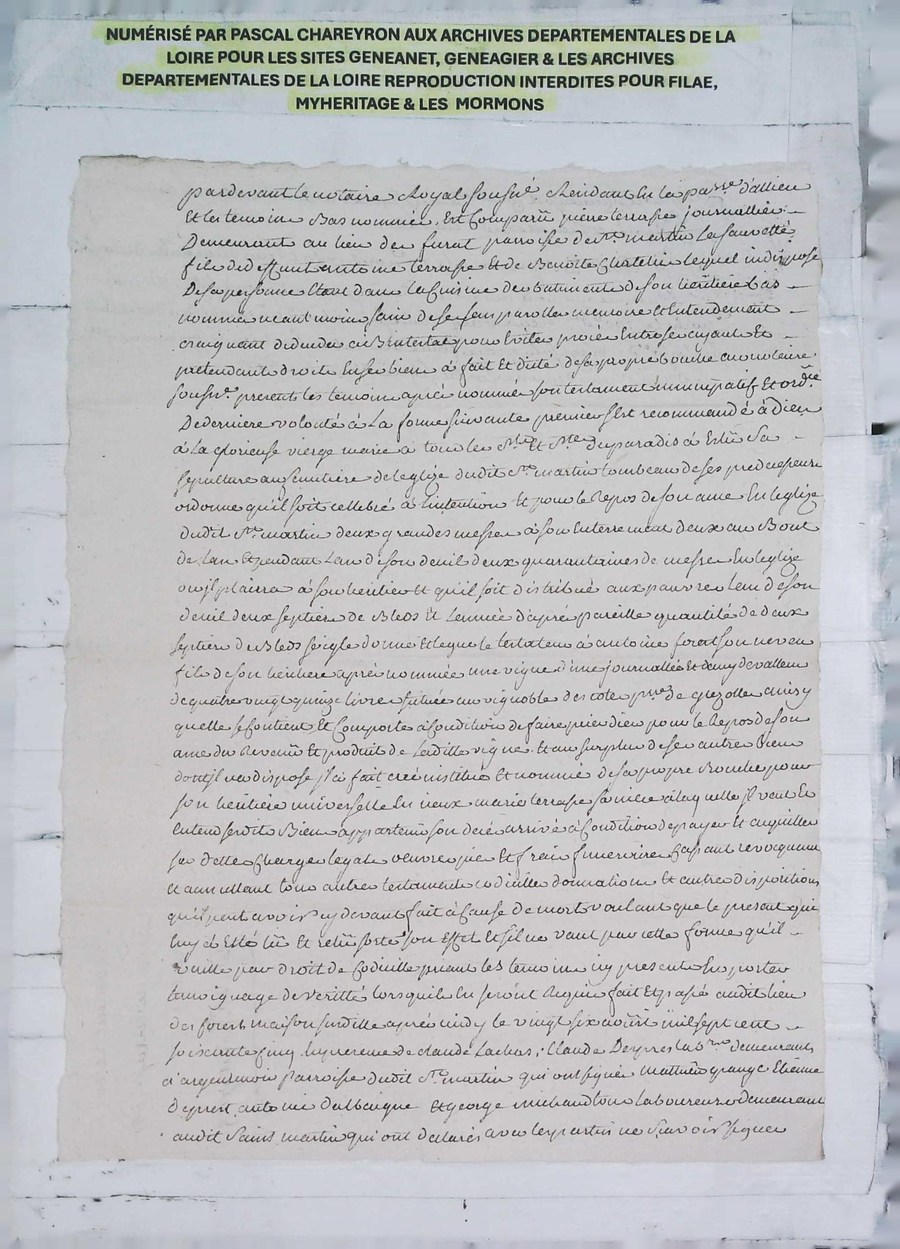 NUMÉRISÉ PAR PASCAL CHAREYRON AUX ARCHIVES DEPARTEMENTALES DE LA
LOIRE POUR LES SITES GENEANET, GENEAGIER & LES ARCHIVES
DEPARTEMENTALES DE LA LOIRE REPRODUCTION INTERDITES POUR FILAE,
MYHERITAGE & LES MORMONS
pardevant le notaire Royal sousne Residant en la parsse d'allieu
Et les temoins Bas nommés, Est Comparu pierre terrasse journallier
Demeurant au lieu de furat paroisse de st martin La sauveté
fils de deffunt antoine terrasse Et de Benoite Chatelin lequel indispose
De sa personne Etant dans la Cuisine des batiments de son heritiere bas
nommée neantmoins sain de ses sens parolle memoire Et Entendement
craignant de deceder ab intestat pour Eviter procès Entre ses ayants Et
pretendants droits En ses biens à fait Et dicté de sa propre bouche au notaire
sousne presents les temoins après nommés son testament nuncupatif Et ordre
De derniere volonté à La forme suivante premier s'est recommandé à Dieu
à la glorieuse vierge marie à tous les sts Et stes du paradis à Esleu Sa
sepulture au semitiere de leglize dudit st martin tombeau de ses predecesseurs
ordonne qu'il soit cellebré à l'intention Et pour le Repos de son ame En leglize
dudit st martin deux grandes messes à son Enterrement deux au Bout
de L'an Et pendant L'an de son deuil deux quarantaines de messes En leglize
ou jl plaira à son heritiere Et qu'il soit distribué aux pauvres L'an de son
deuil deux septiers de Bleds Et L'année d'après pareille quantité de deux
septiers de Bleds seigle donne Et legue le testateur à antoine forest son neveu
fils de son heritiere après nommée une vigne d'une journallée Et demy de valleur
de quatre vingt quinze livres située au vignoble des cote parsse de grezolles ainsy
quelle se Contient Et Comporte à Condition de faire prier dieu pour le Repos de son
ame du Revenu Et produit de Ladite vigne Et au surplus de ses autres Biens
dont jl na dispose jl à fait créé institué Et nommé de sa propre Bouche pour
son heritiere universelle marie terrasse sa niece à laquelle jl veut Et
Entend sesdits Biens appartenir son decès arrivé à Condition de payer Et acquitter
ses dettes Charges legats oeuvres pies Et frais funeraires Cassant revocquant
Et annullant tous autres testaments codicilles donnations Et autres dispositions
qu'il peut avoir cy devant fait à Cause de mort voulant que le present qui
luy à Esté lû Et relû sorte son Effet Et s'il ne vaut par cette forme qu'il
vaille par droit de Codicille priant les temoins icy presents En porter
temoignage de verité lorsquils En seront Requis fait Et passé audit lieu
des forets maison susditte après midy le vingt six aoust mil sept cent
soixante cinq En presence de claude Lachas, Claude Depres demeurants
à argentnoir parroisse dudit st martin qui ont signé matthieu grange Etienne
Deprest, antoine Dalbaigue Et george michaud tous laboureurs demeurants
audit Saint martin qui ont declarés avec les parties ne sçavoir signer